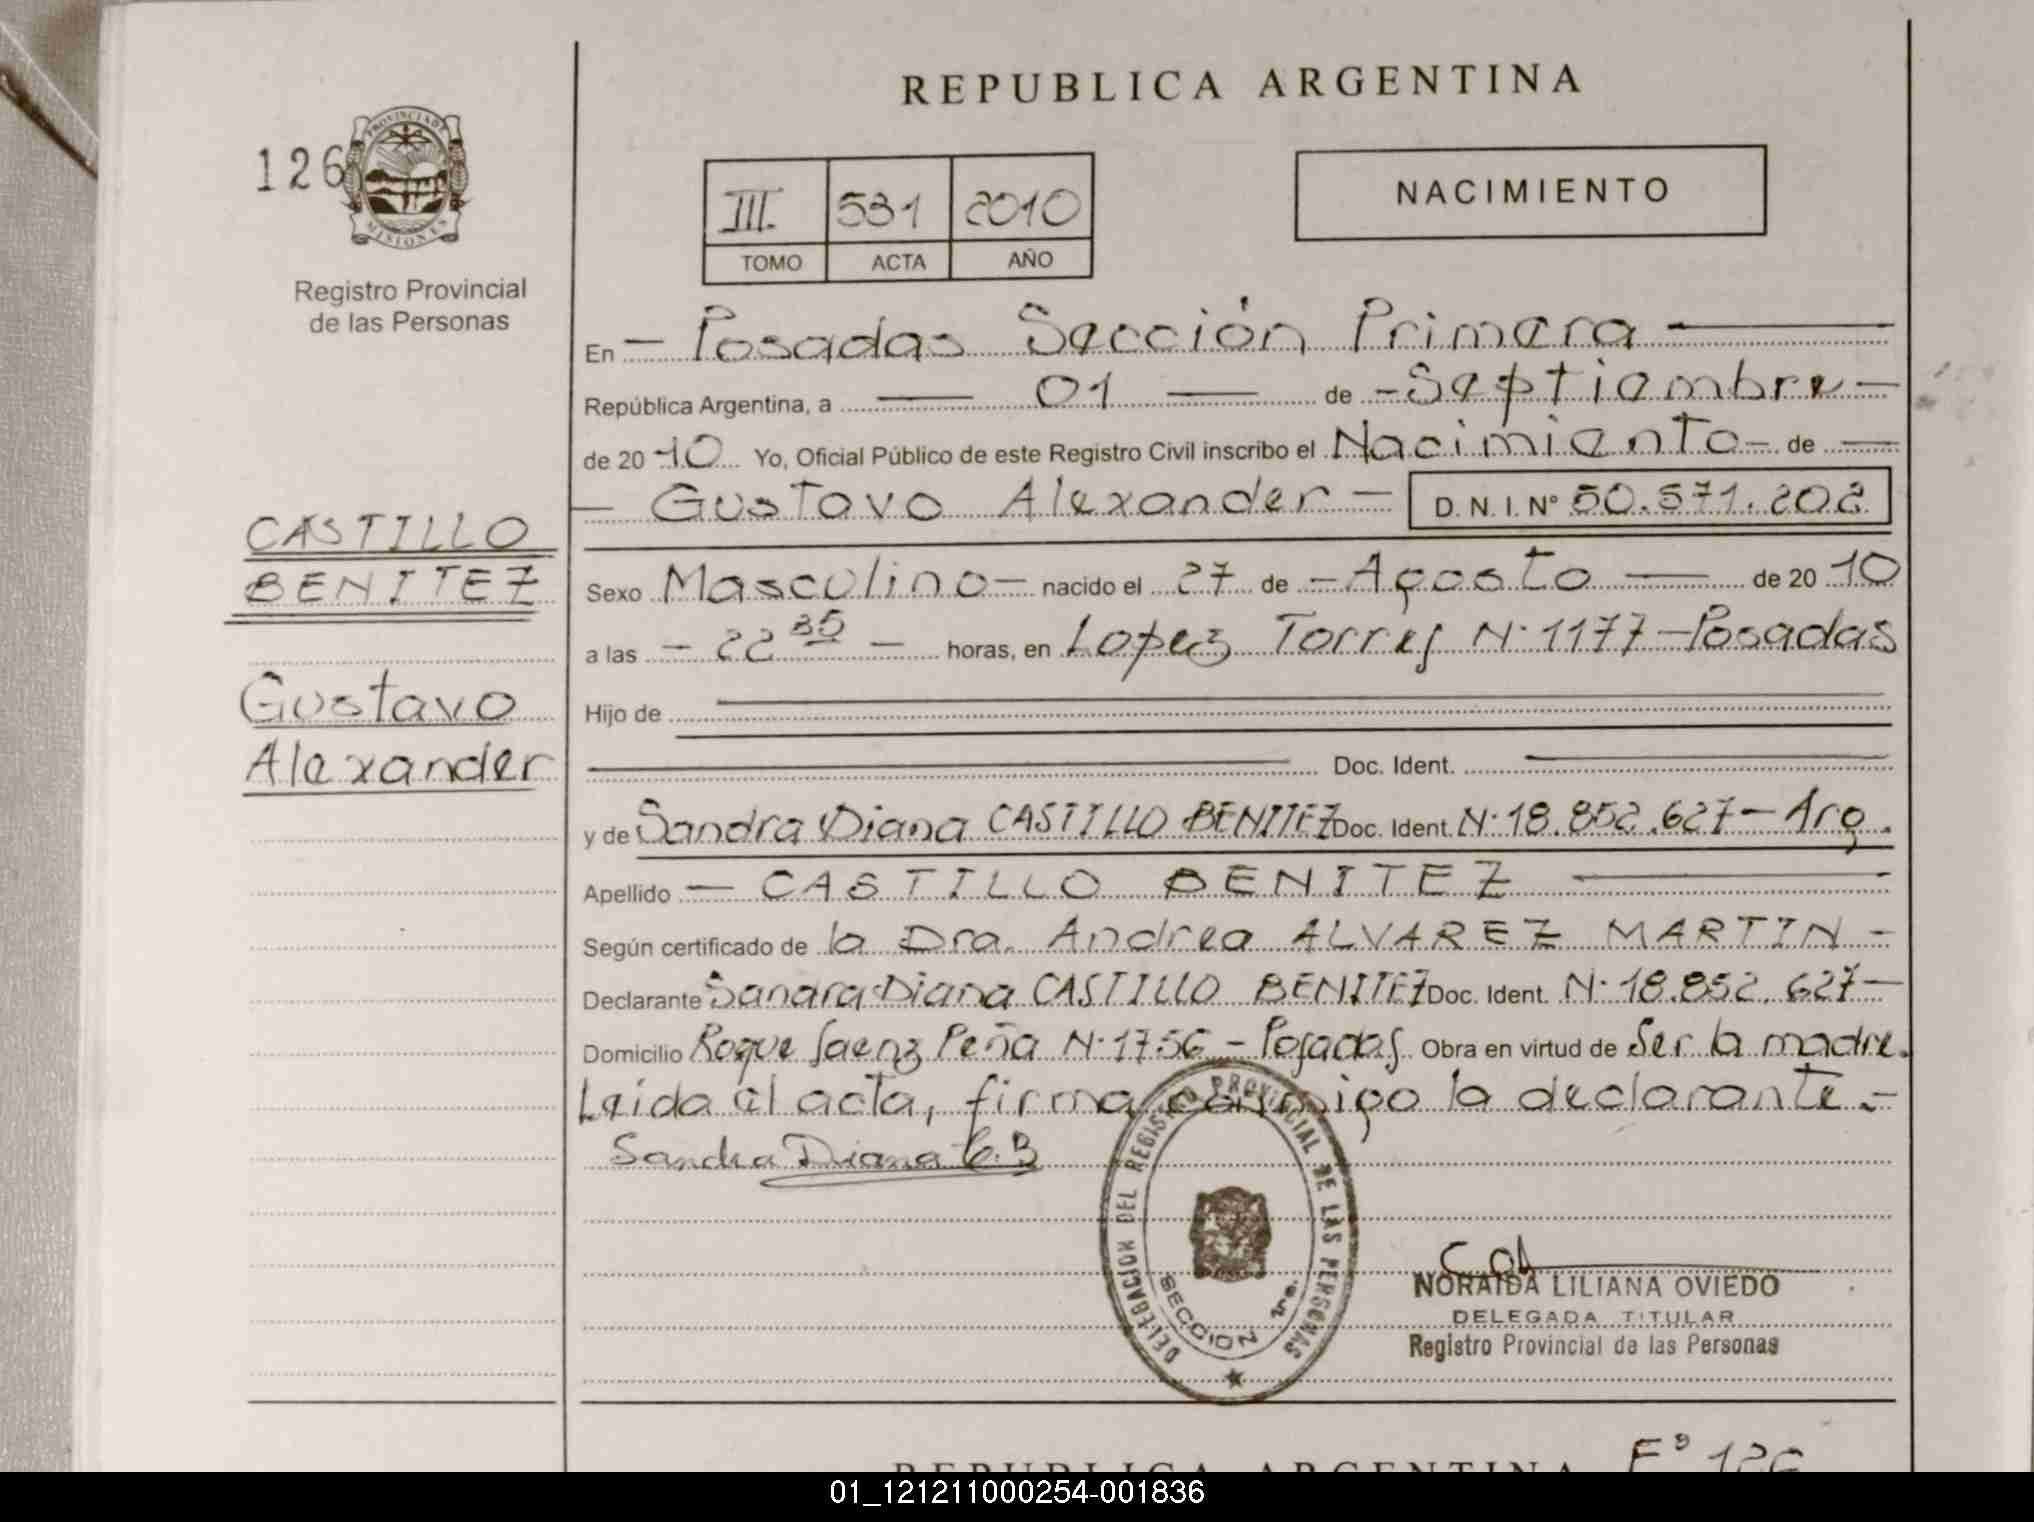 REPUBLICA ARGENTINA
126
PROVINCIA DE MISIONES
Registro Provincial
de las Personas
III. 531 2010
TOMO ACTA AÑO
NACIMIENTO
En — Posadas Sección Primera —
República Argentina, a — 01 — de - Septiembre -
de 20 10 Yo, Oficial Público de este Registro Civil inscribo el Nacimiento - de —
— Gustavo Alexander — D.N.I. Nº 50.571.202
CASTILLO
BENITEZ
Gustavo
Alexander
Sexo Masculino - nacido el 27 de - Agosto — de 20 10
a las - 22 35 - horas, en Lopez Torres N· 1177 - Posadas
Hijo de
Doc. Ident.
y de Sandra Diana CASTILLO BENITEZ Doc. Ident. N· 18.852.627 - Arg.
Apellido — CASTILLO BENITEZ —
Según certificado de la Dra. Andrea ALVAREZ MARTIN -
Declarante Sandra Diana CASTILLO BENITEZ Doc. Ident. N· 18.852.627 -
Domicilio Roque Saenz Peña N· 1756 - Posadas Obra en virtud de Ser la madre.
Leida el acta, firma conmigo la declarante.-
Sandra Diana C.B
DELEGACION DEL REGISTRO PROVINCIAL DE LAS PERSONAS
SECCION 1ra.
NORAIDA LILIANA OVIEDO
DELEGADA TITULAR
Registro Provincial de las Personas
REPUBLICA ARGENTINA Fº 126
01_121211000254-001836